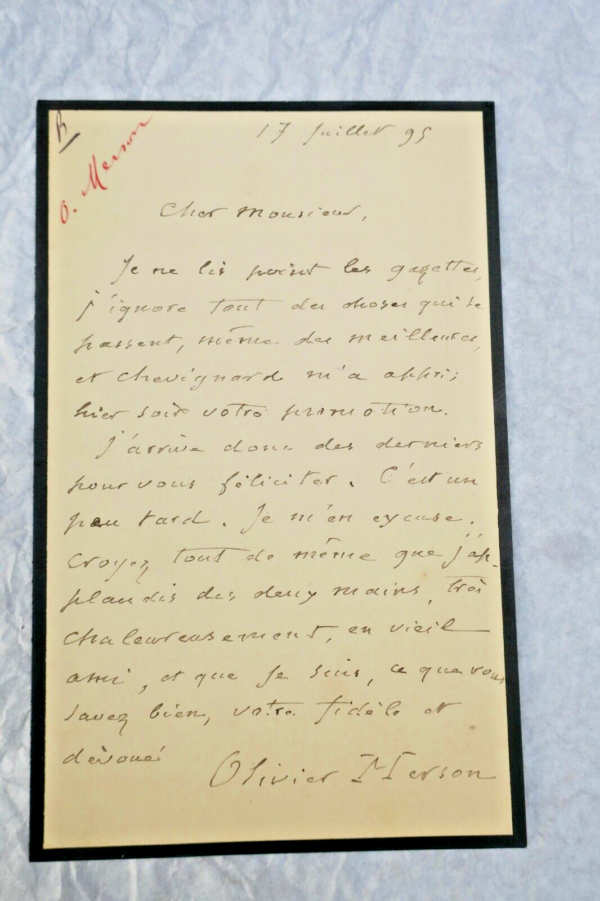 R
O. Merson
17 Juillet 95
Cher Monsieur,
Je ne lis point les gazettes,
j'ignore tout des choses qui se
passent, même des meilleures,
et Chevignard m'a appris
hier soir votre promotion.
J'arrive donc des derniers
pour vous féliciter. C'est un
peu tard. Je m'en excuse.
Croyez tout de même que j'ap-
plaudis des deux mains, très
chaleureusement, en vieil
ami, et que je suis, ce que vous
savez bien, votre fidèle et
dévoué
Olivier Merson